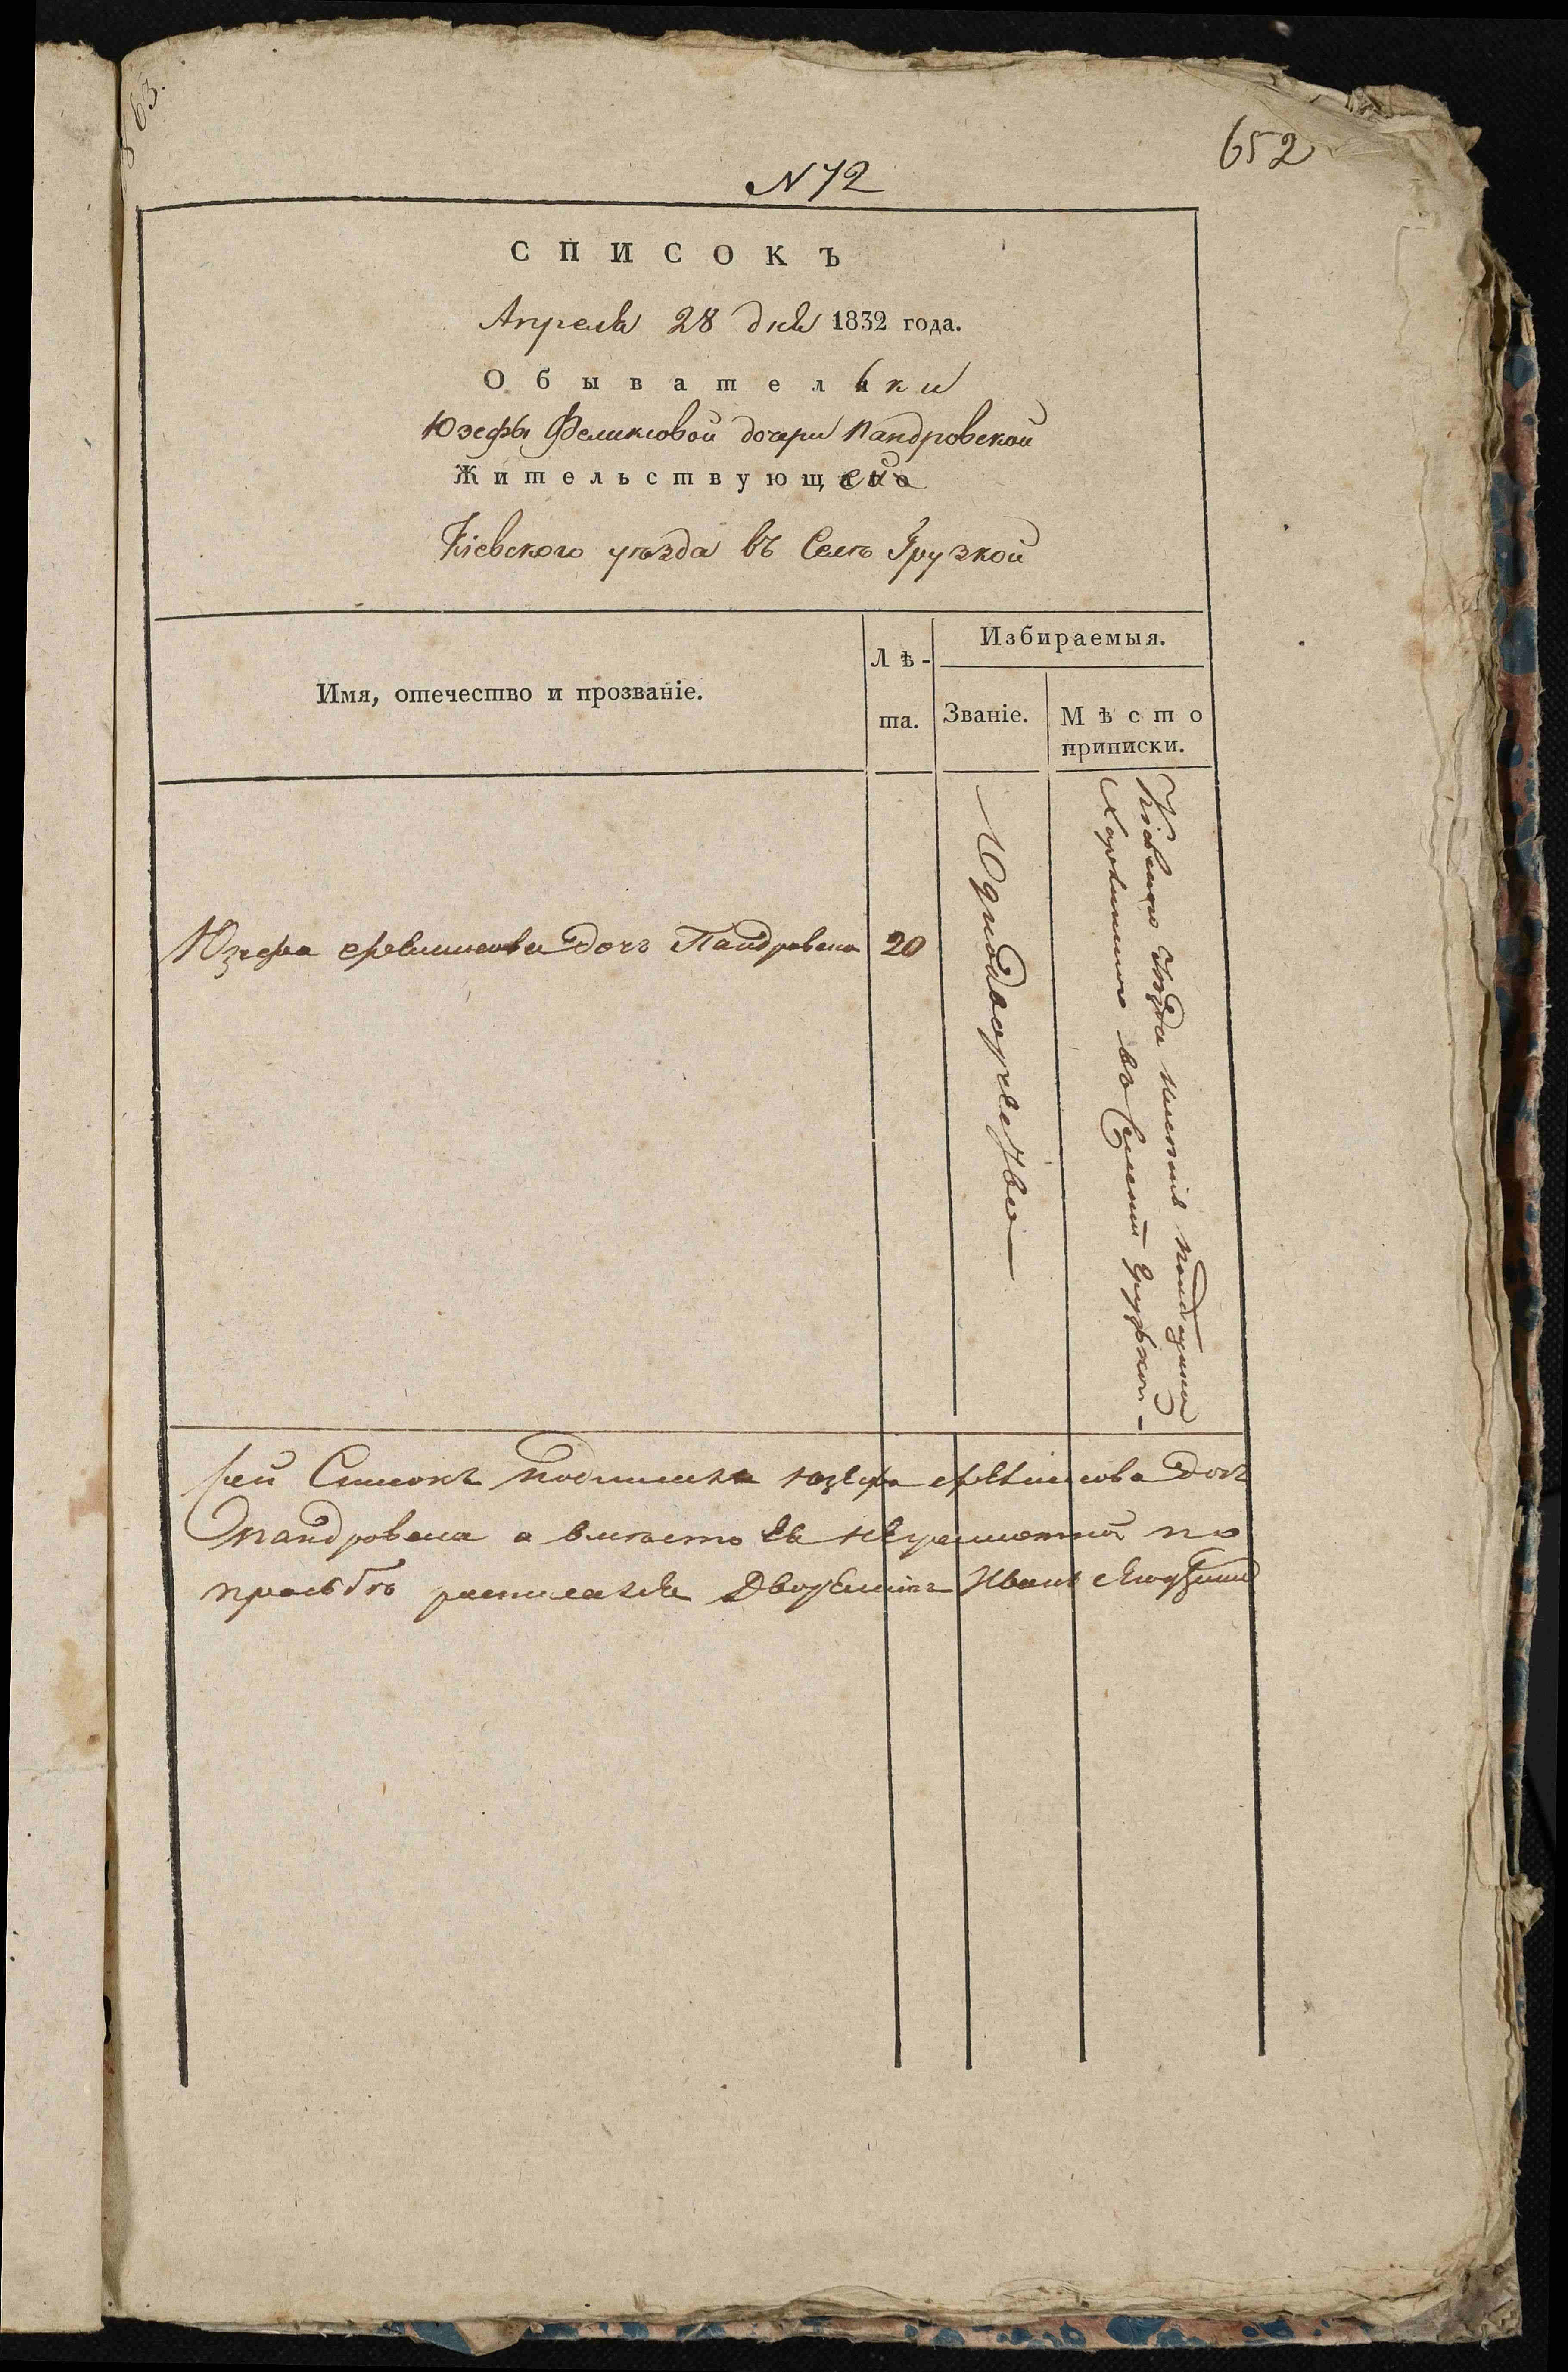 652
N 72
СПИСОКЪ
Апреля 28 дня 1832 года.
Обывательки
Юзефы Феликсовой дочери Пандровской
Жительствующей
Кіевского уѣзда въ Селѣ Грузкой
Имя, отечество и прозваніе.
Лѣ-
та.
Избираемыя.
Званіе.
Мѣсто
приписки.
Юзефа Феликсова дочь Пандровска
20
Однодворчество
Кіевского уѣзда
въ Селеніи Грузкой
Сей Списокъ подписала Юзефа Феликсова дочь
Пандровска а вместо ея неграмотной по
прозьбѣ росписался Дворянинъ Иванъ